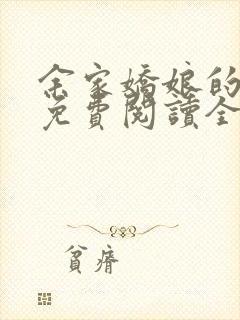 余家嬌娘的
免費閱讀全
貧瘠